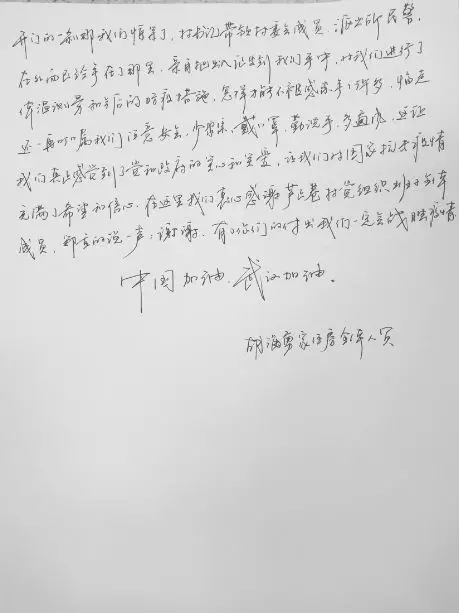 开门的一刹那我们惊呆了,村书记带领村委会成员,派出所民警,
在外面已经等在了那里,亲自把出入证送到我们手中,对我们进行了
体温测量和今后的防疫措施,怎样才能不被感染等许多,临走
还一再叮嘱我们注意安全,少出来,戴口罩,勤洗手,多通风,这让
我们真正感觉到了党和政府的关心和关爱,让我们对国家抗击疫情
充满了希望和信心,在这里我们衷心感谢芦巷村党组织班子全体
成员,郑重的说一声:谢谢,有了你们的付出我们一定会战胜疫情
中国加油,武汉加油。
胡海勇家住房全体人员